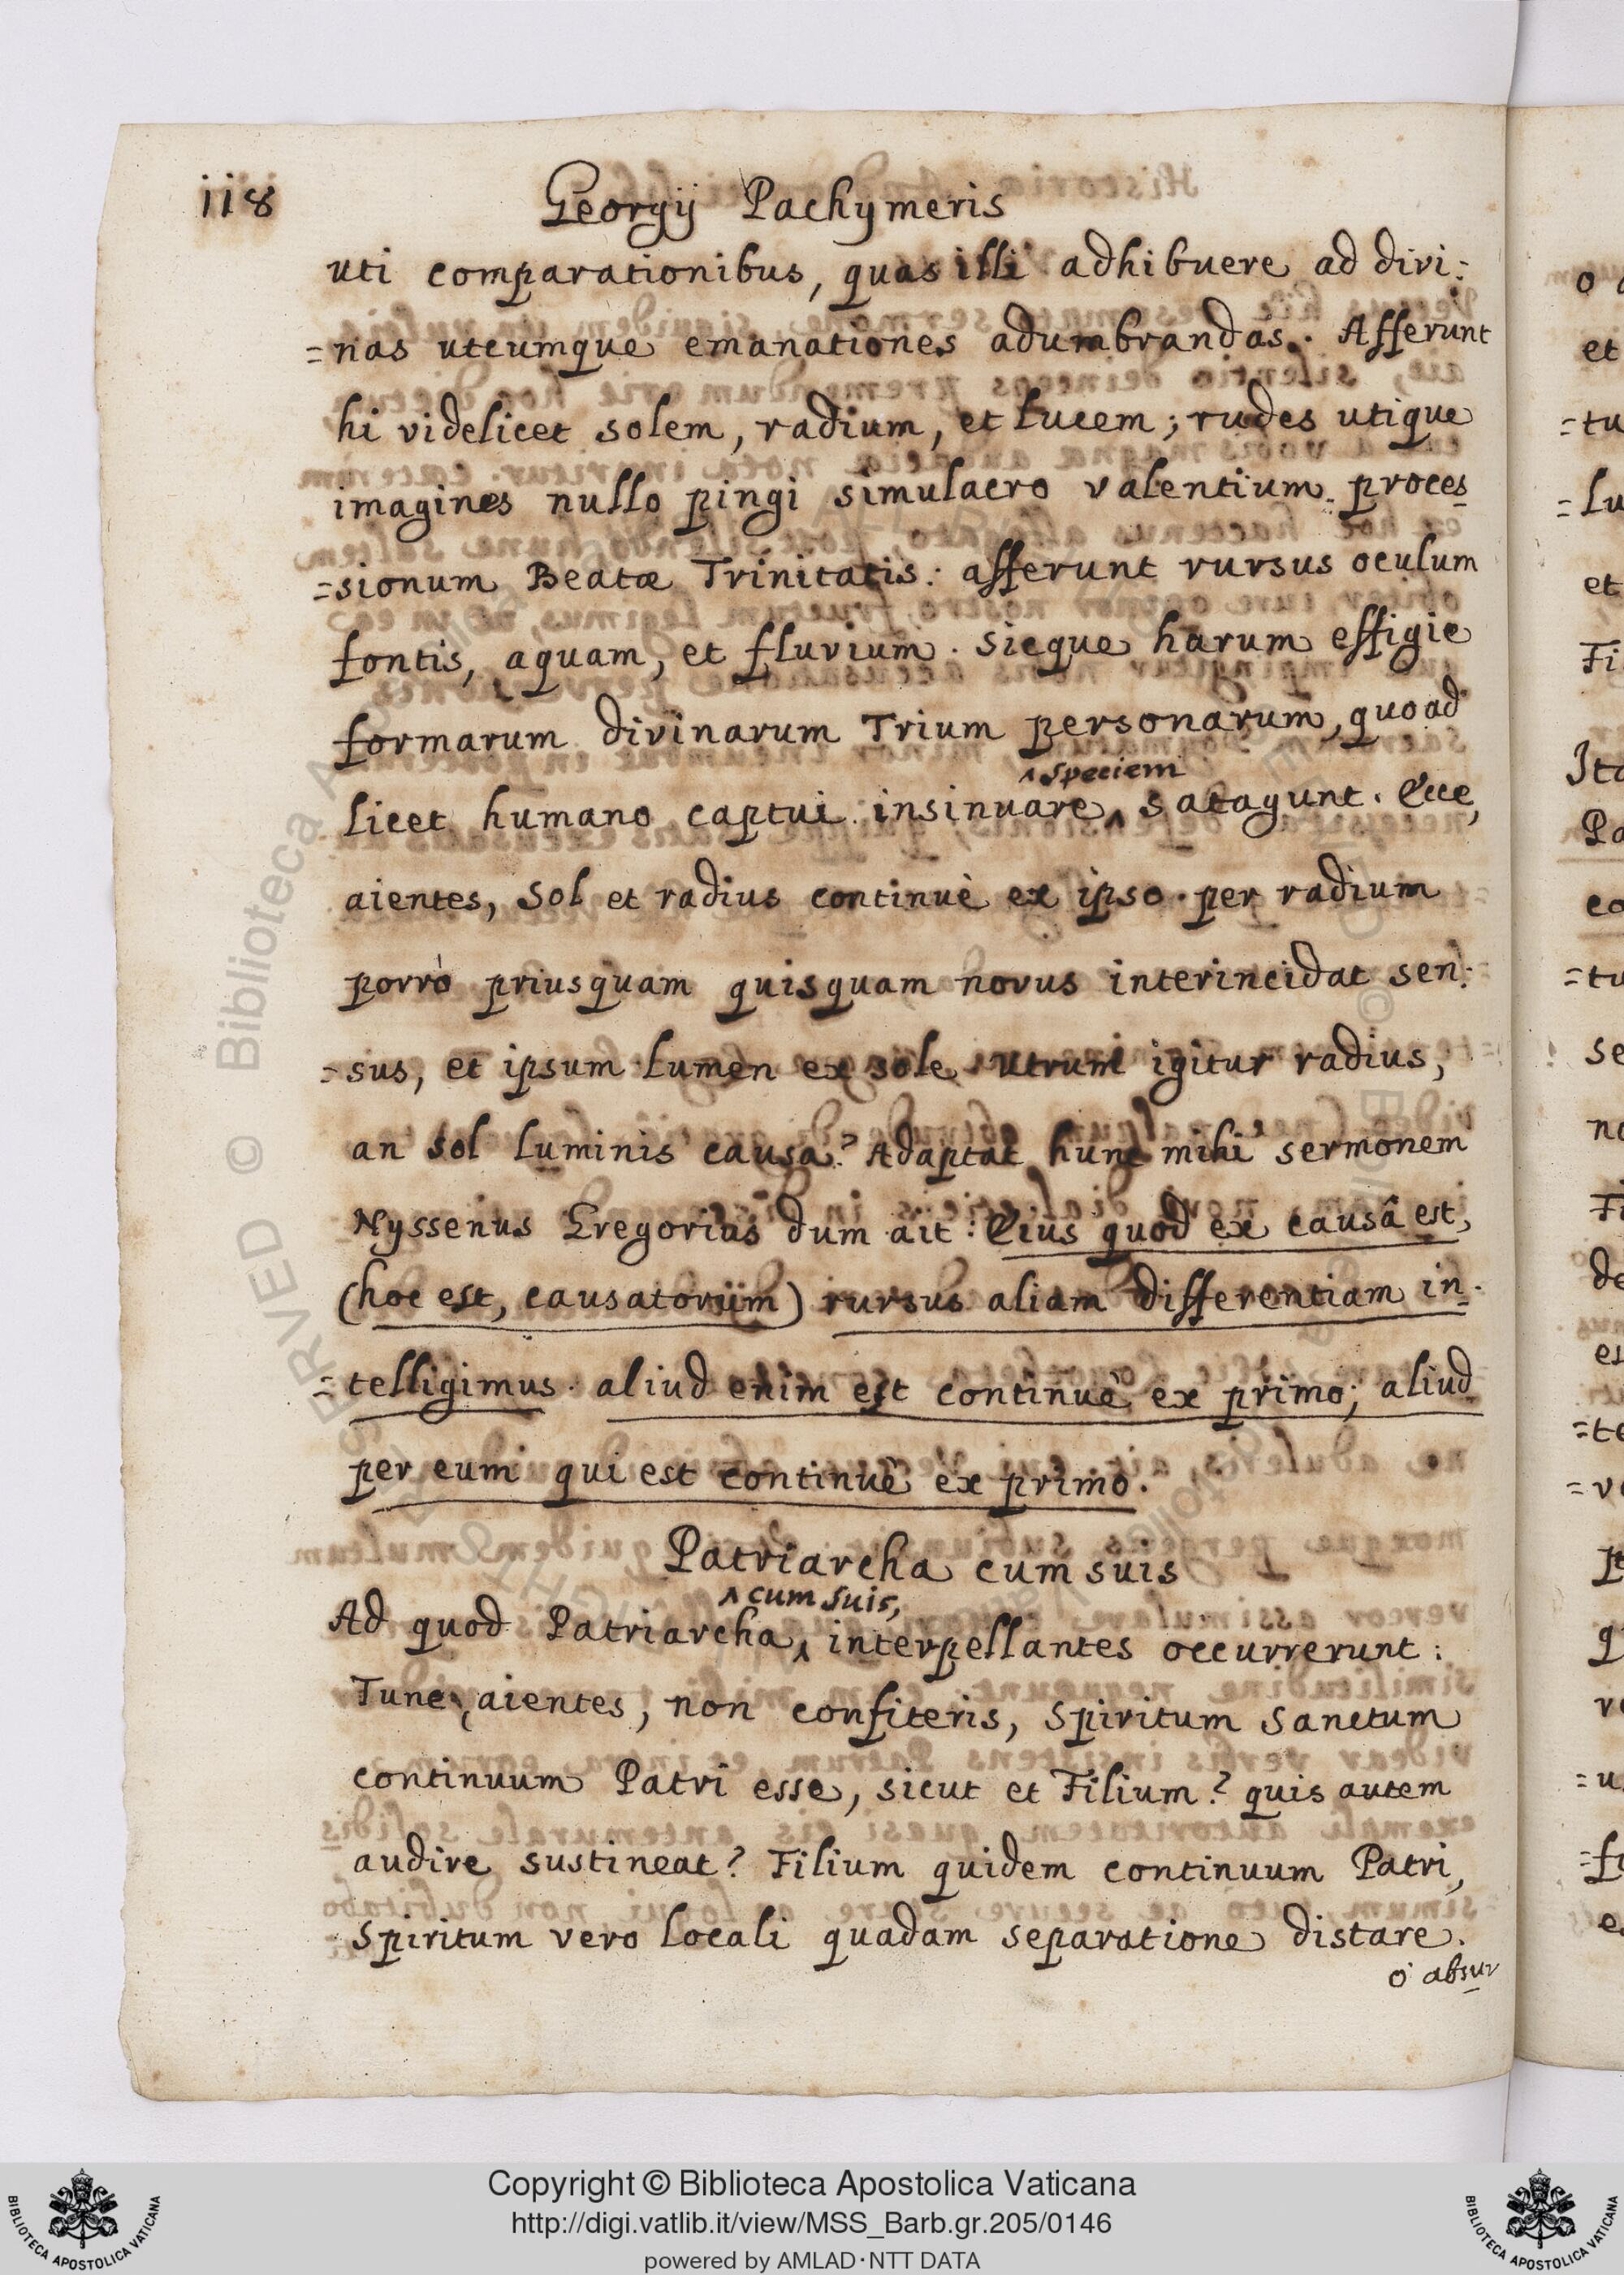 118
Georgij Pachymeris
uti comparationibus, quas illi adhibuere ad divi=
=nas utcumque emanationes adumbrandas. Afferunt
hi videlicet solem, radium, et lucem; rudes utique
imagines nullo pingi simulacro valentium proces
=sionum Beatæ Trinitatis: afferunt rursus oculum
fontis, aquam, et fluvium. Sicque harum effigie
formarum divinarum Trium personarum, quoad
^ speciem
licet humano captui insinuare ^ satagunt. Ecce,
aientes, Sol et radius continuè ex ipso. per radium
porrò priusquam quisquam novus interincidat sen=
=sus, et ipsum lumen ex sole. Utrum igitur radius,
an sol luminis causa? Adaptat hunc mihi sermonem
Nyssenus Gregorius dum ait: Eius quod ex causâ est,
(hoc est, causatorum) rursus aliam differentiam in=
=telligimus. aliud enim est continuè ex primo; aliud
per eum qui est continuè ex primo.
Patriarcha cum suis
^ cum suis,
Ad quod Patriarcha ^ interpellantes occurrerunt:
Tune, aientes, non confiteris, Spiritum Sanctum
continuum Patri esse, sicut et Filium? quis autem
audire sustineat? Filium quidem continuum Patri,
Spiritum vero locali quadam separatione distare.
ò absur
Copyright © Biblioteca Apostolica Vaticana
http://digi.vatlib.it/view/MSS_Barb.gr.205/0146
powered by AMLAD·NTT DATA
BIBLIOTECA APOSTOLICA VATICANA
BIBLIOTECA APOSTOLICA VATICANA